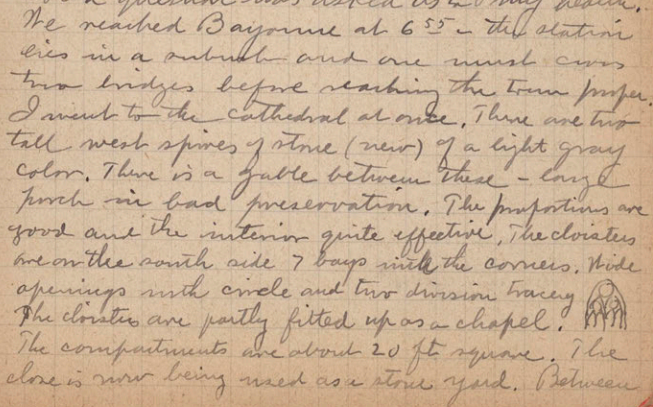 a question was asked as to my health.
We reached Bayonne at 6 55 - the station
lies in a suburb and one must cross
two bridges before reaching the town proper.
I went to the cathedral at once. There are two
tall west spires of stone (new) of a light gray
color. There is a gable between these - large
porch in bad preservation. The proportions are
good and the interior quite effective. The cloisters
are on the south side 7 bays with the corners. Wide
openings with circle and two division tracery
The cloisters are partly fitted up as a chapel.
The compartments are about 20 ft square. The
close is now being used as a stone yard. Between